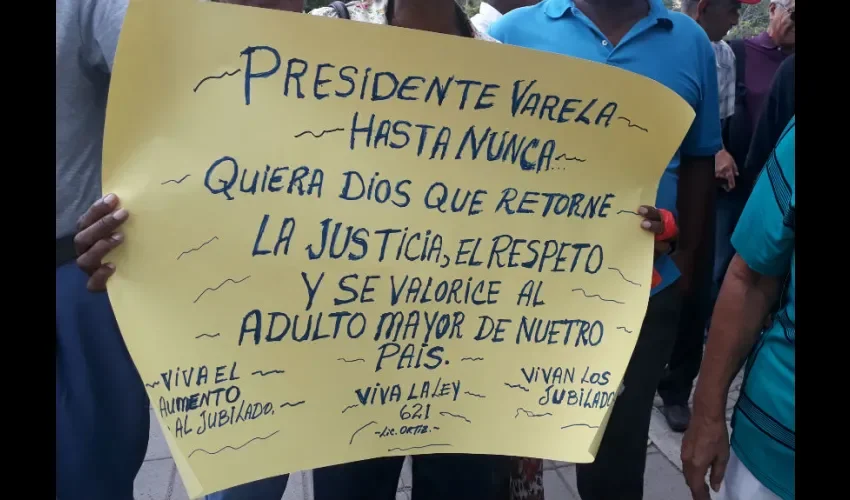 PRESIDENTE VARELA
HASTA NUNCA...
QUIERA DIOS QUE RETORNE
LA JUSTICIA, EL RESPETO
Y SE VALORICE AL
ADULTO MAYOR DE NUETRO
PAÍS.
VIVA EL
AUMENTO
AL JUBILADO.
VIVA LA LEY
621
-LIC. ORTIZ.-
VIVAN LOS
JUBILADO